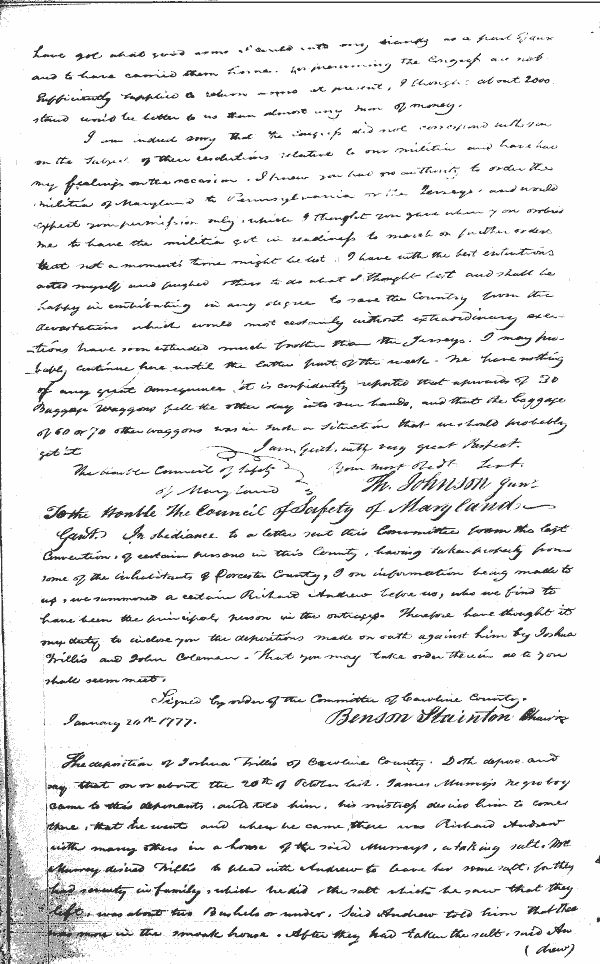 have got what good arms I could into my hands as a fruit
and to have carried them home. for presuming the Congress are not
sufficiently supplied to return arms at present, I thought about 2000
stand would be better to us than almost any sum of money.
I am indeed sorry that the Congress did not correspond with you
on the subject of their resolutions relative to our militia and have had
my feelings on the occasion. I knew you had no authority to order the
militia of Maryland to Pennsylvania or the Jerseys. and would
expect your permission only, which I thought you gave when you ordered
me to have the militia got in readiness to march on further orders
that not a moments time might be lost. I have with the best intentions
acted myself and pushed others to do what I thought best and shall be
happy in contributing in any degree to save the Country from the
devastations which would most certainly without extraordinary exer-
-tions have soon extended much further than the Jerseys. I may pro-
-bably continue here until the latter part of the week. We have nothing
of any great consequence, it is confidently reported that upwards of 30
Baggage Waggons fell the other day into our hands, and that the baggage
of 60 or 70 other waggons was in such a situation that we should probably
get it
I am, Gent. with very great Respect.
The honble Council of Safety
Your most Obdt Servt.
of Maryland
Th. Johnson Junr
To the Honble The Council of Safety of Maryland.
Gents. In obediance to a letter sent this Committee from the last
Convention, of certain persons in this County, having taken property from
some of the inhabitants of Dorcester County, I on information being made to
us, we summoned a certain Richard Andrew before us, who we find to
have been the principal person in the outrages. Therefore have thought it
my duty to inclose you the depositions made on oath against him by Joshua
Willis and John Coleman. That you may take order therein as to you
shall seem meet.
Signed by order of the Committee of Caroline County.
January 20th 1777.
Benson Stainton Chairn
The deposition of Joshua Willis of Caroline County. Doth depose and
say that on or about the 20th of October last. James Murrays negro boy
came to this deponents, and told him, his mistress desired him to come
there, that he went and when he came, there was Richard Andrew
with many others in a house of the said Murrays, a taking salt. Mrs
Murrey desired Willis to plead with Andrew to leave her some salt, for they
had security in family, which he did. the salt which he saw that they
left, was about two Bushels or under. Said Andrew told him that there
was more in the smoak house. After they had taken the salt, said An
(drew)